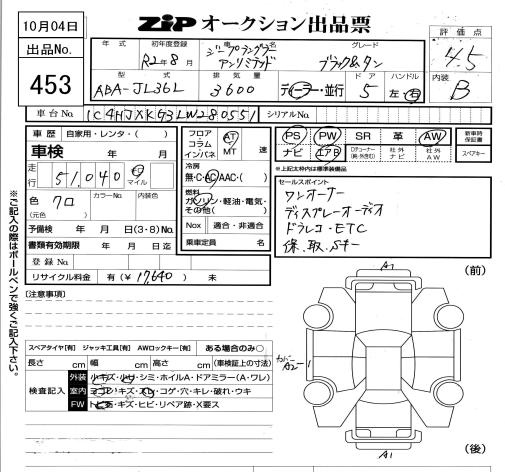 10月04日
出品No.
453
ZIP オークション出品票
評価点
4.5
内装
B
年式 初年度登録 車名 グレード
R2年8月 ジープラングラー アンリミテッド ブラック&タン
型式 排気量 ドア ハンドル
ABA-JL36L 3600 ディーラー・並行 5 左・右
車台No. 1C4HJXKG3LW280551 シリアルNo.
車歴 自家用・レンタ・( )
車検 年 月
走行 51,040 km マイル
色 クロ (元色) カラーNo. 内装色
予備検 年 月 日(3・8)No.
書類有効期限 年 月 日迄
登録No.
リサイクル料金 有(¥17,640) 未
フロア コラム インパネ AT MT 速
冷房
無・C・AC・AAC・( )
燃料
ガソリン・軽油・電気・その他( )
Nox 適合・非適合
乗車定員 名
PS PW SR 革 AW 新車時保証書
ナビ エアB 社外ナビ 社外AW スペアキー
※上記太枠内は標準装備品
セールスポイント
ワンオーナー
ディスプレーオーディオ
ドラレコ・ETC
保、取、Sキー
※ご記入の際はボールペンで強くご記入下さい。
[注意事項]
スペアタイヤ[有] ジャッキ工具[有] AWロックキー[有] ある場合のみ○
長さ cm 幅 cm 高さ cm (車検証上の寸法)
検査記入
外装 小キズ・小凹・シミ・ホイルA・ドアミラー(A・ワレ)
室内 ヨゴレ・キズ・スレ・コゲ・穴・キレ・破れ・ウキ
FW トビ石・キズ・ヒビ・リペア跡・X要ス
(前)
A1
カバー A2
A1
(後)